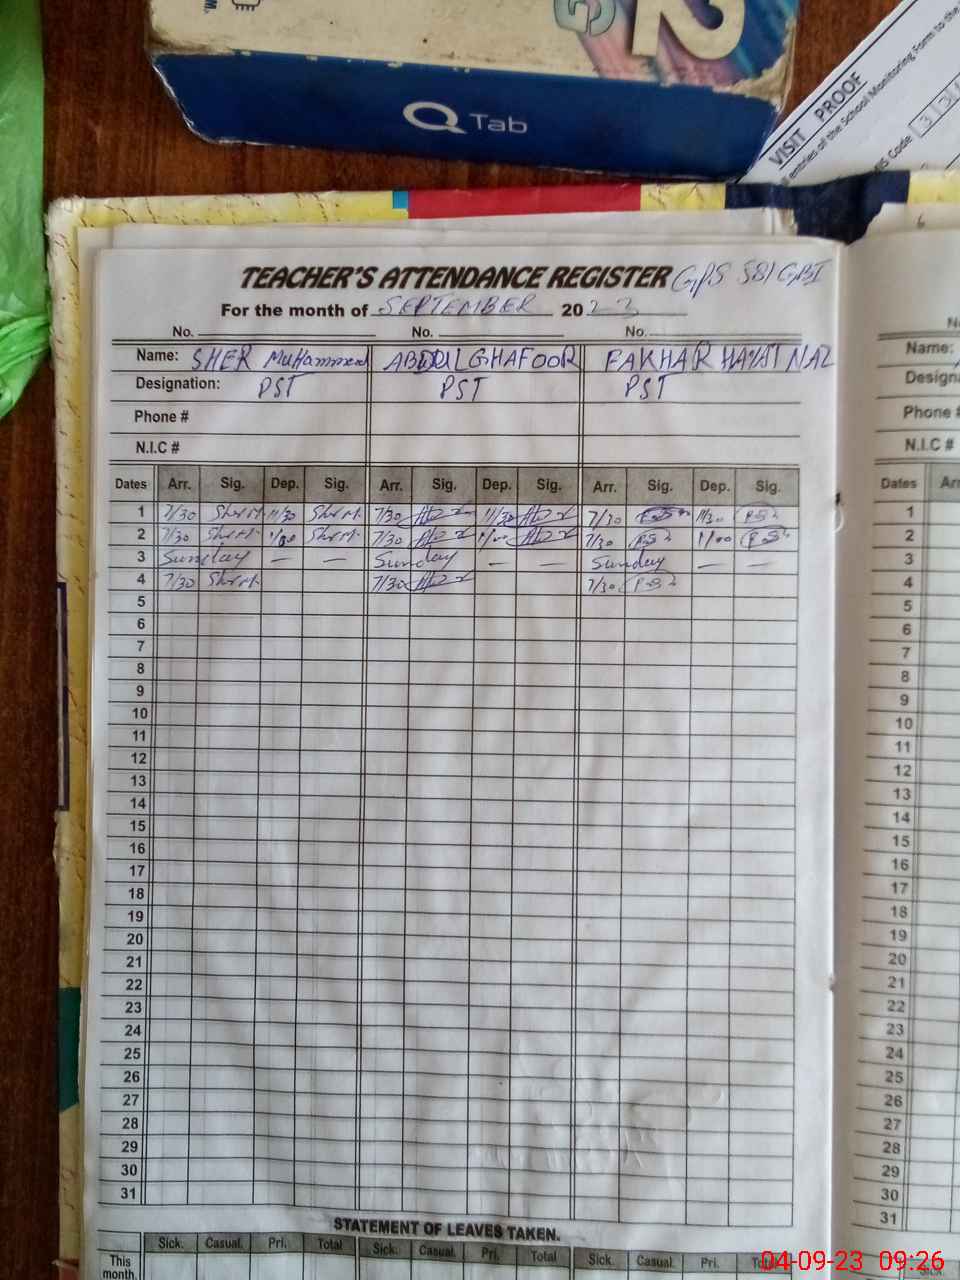 Q Tab
VISIT PROOF
entries of the School Monitoring Form to the
Code 3 3
TEACHER'S ATTENDANCE REGISTER GPS 581 GBI
For the month of SEPTEMBER 2023
No. No. No.
Name: SHER MuHammed ABDUL GHAFOOR FAKHAR HAYAT NAZ
Designation: PST PST PST
Phone #
N.I.C #
Dates Arr. Sig. Dep. Sig. Arr. Sig. Dep. Sig. Arr. Sig. Dep. Sig.
1 7/30 11/30 7/30 11/30 7/30 11/30
2 7/30 7/30 11/00 7/30 11/00
3 Sunday — — Sunday — — Sunday — —
4 7/30 7/30 7/30
5
6
7
8
9
10
11
12
13
14
15
16
17
18
19
20
21
22
23
24
25
26
27
28
29
30
31
STATEMENT OF LEAVES TAKEN.
Sick. Casual. Pri. Total Sick. Casual. Pri. Total Sick. Casual. Pri. Total
This
month.
6
Name:
Phone #
N.I.C #
Dates
1
2
3
4
5
6
7
8
9
10
11
12
13
14
15
16
17
18
19
20
21
22
23
24
25
26
27
28
29
30
31
Sick.
04-09-23 09:26